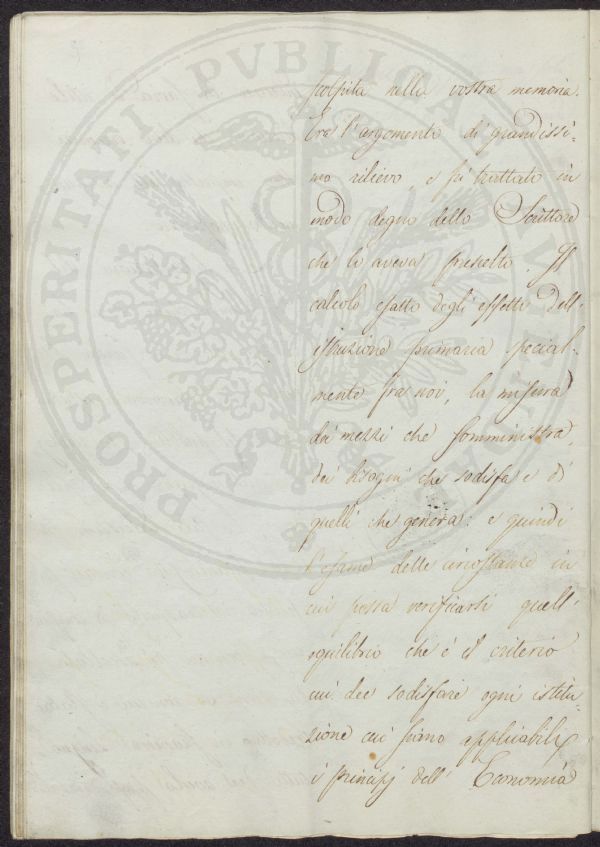 PROSPERITATI PVBLICAE AVGENDAE
scolpita nella vostra memoria.
Era l'argomento di grandissi=
mo rilievo, e fu trattato in
modo degno dello Scrittore
che lo aveva prescelto. Il
calcolo esatto degli effetti dell'
istruzione primaria special=
mente fra noi, la misura
dei mezzi che somministra,
dei bisogni che sodisfa e di
quelli che genera: e quindi
l'esame delle circostanze in
cui possa verificarsi quell'
equilibrio che è il criterio
cui dee sodisfare ogni istitu=
zione cui siano applicabili
i principj dell' Economia